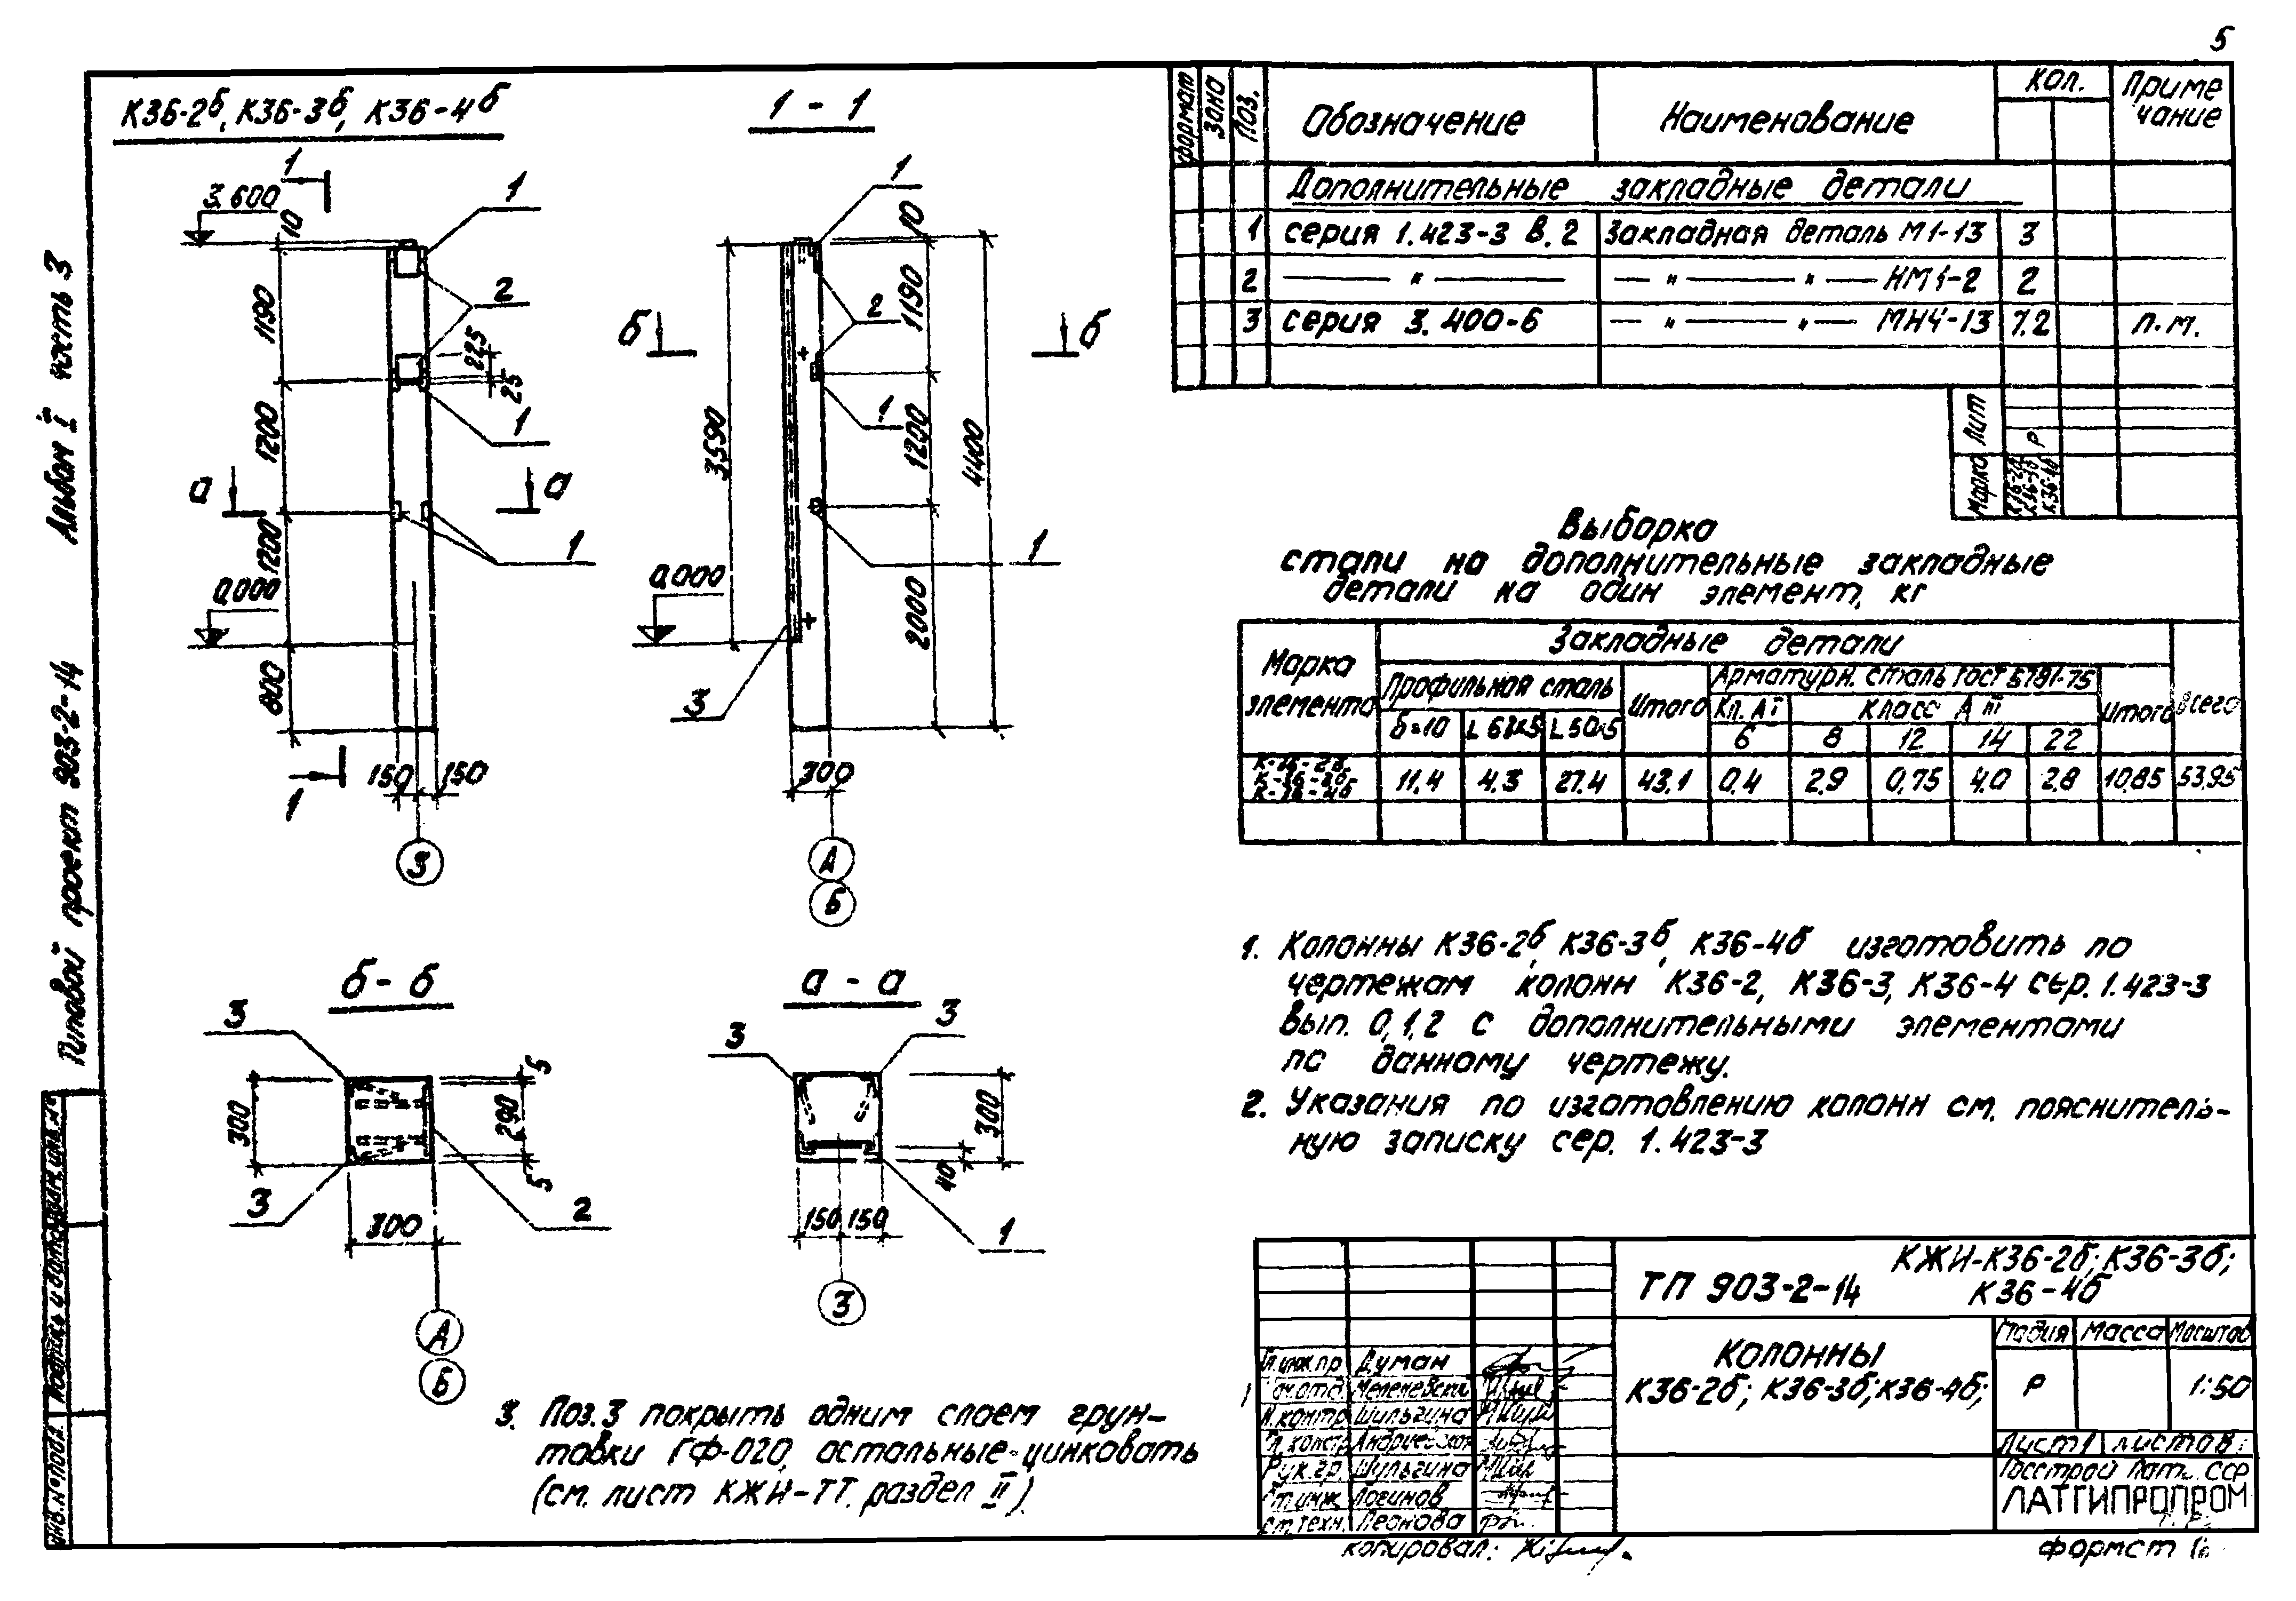 5
К36-2б, К36-3б, К36-4б
1 - 1
1
3.600
10
1
2
1190
225
25
1
1200
а
а
1200
1
0.000
800
1
150
150
3
1
10
1190
2
б
б
1
3590
1200
4400
1
0.000
2000
3
300
А
Б
б - б
3
300
5
290
5
3
2
300
А
Б
а - а
3
3
300
40
150
150
1
3
формат
Зона
Поз.
Обозначение
Наименование
Кол.
Приме
чание
Дополнительные закладные детали
1 серия 1.423-3 в.2 Закладная деталь М1-13 3
2 — " — — " — " — НМ1-2 2
3 серия 3.400-6 — " — " — МН4-13 7.2 п.м.
Лит
Р
Марка
К36-2б
К36-3б
К36-4б
Выборка
стали на дополнительные закладные
детали на один элемент, кг
Марка
элемента
Закладные детали
Всего
Профильная сталь
Итого
Арматурн. сталь ГОСТ 5781-75
Итого
δ=10
L 63х5
L 50х5
Кл. АI
Класс А III
6 8 12 14 22
К-36-2б
К-36-3б
К-36-4б
11.4 4.3 27.4 43.1 0.4 2.9 0,75 4.0 2.8 10,85 53,95
1. Колонны К36-2б, К36-3б, К36-4б изготовить по
чертежам колонн К36-2, К36-3, К36-4 сер. 1.423-3
вып. 0,1,2 с дополнительными элементами
по данному чертежу.
2. Указания по изготовлению колонн см. пояснитель-
ную записку сер. 1.423-3
3. Поз.3 покрыть одним слоем грун-
товки ГФ-020, остальные-цинковать
(см. лист КЖИ-ТТ. раздел II).
ТП 903-2-14
КЖИ-К36-2б; К36-3б;
К36-4б
Колонны
К36-2б; К36-3б; К36-4б;
Стадия Масса Масштаб
Р 1:50
Лист 1 Листов
Госстрой Латв. ССР
ЛАТГИПРОПРОМ
Гл.инж.пр Думан
Н.контр Шульгина
Гл.констр
Рук.гр. Шульгина
Ст.инж Логинов
Ст.техн. Леонова
копировал:
формат
Альбом I часть 3
Типовой проект 903-2-14
Инв.№ подл. Подпись и дата Взам.инв.№